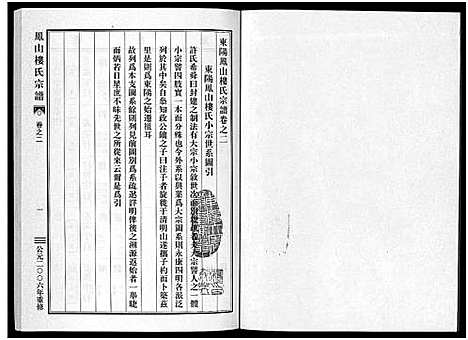 東陽鳳山樓氏宗譜卷之二
東陽鳳山樓氏小宗世系圖引
許氏希舜曰封建之制法有大宗小宗敘世次而別
小宗譬四肢實一本而分殊也今外系以與業爲大宗圖系則永康四明各派泛
列於其中矣自叅知政公鐃之子曰注于者旋從于清明山遂攜子杓而卜築茲
里是則爲東陽之始遷祖耳
故列爲本支圖系餘則列見前圖別爲系疏遐詳明俾後之溯源返始者一舉睫
而炳若日星庶不昧先世之所從來云爾是爲引
鳳山樓氏宗譜
卷之二
一
公元二〇〇六年重修